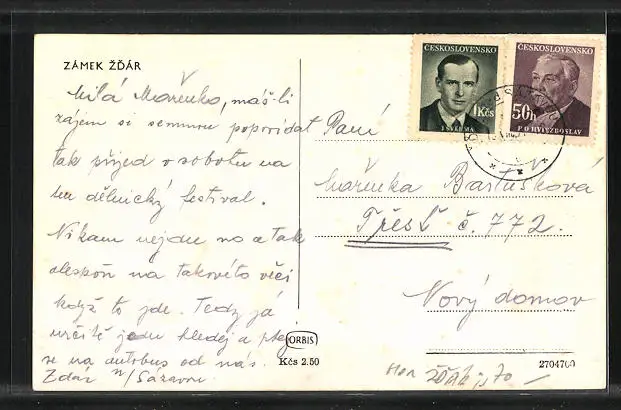 ZÁMEK ŽĎÁR
Milá Mařenko, máš-li
zájem si semnou popovídat
tak přijeď v sobotu na
ten dělnický festival.
Nikam nejdu no a tak
alespoň na takovéto věci
když to jde. Tedy já
určitě jedu hledej a ptej
se na autobus od nás.
Zdár n/Sázavou.
ORBIS
Kčs 2.50
ČESKOSLOVENSKO
1Kčs
J. ŠVERMA
ČESKOSLOVENSKO
50h
P. O. HVIEZDOSLAV
Paní
Mařenka Bartušková
Třešť č. 772.
Nový domov
2704700
ŽĎÁR